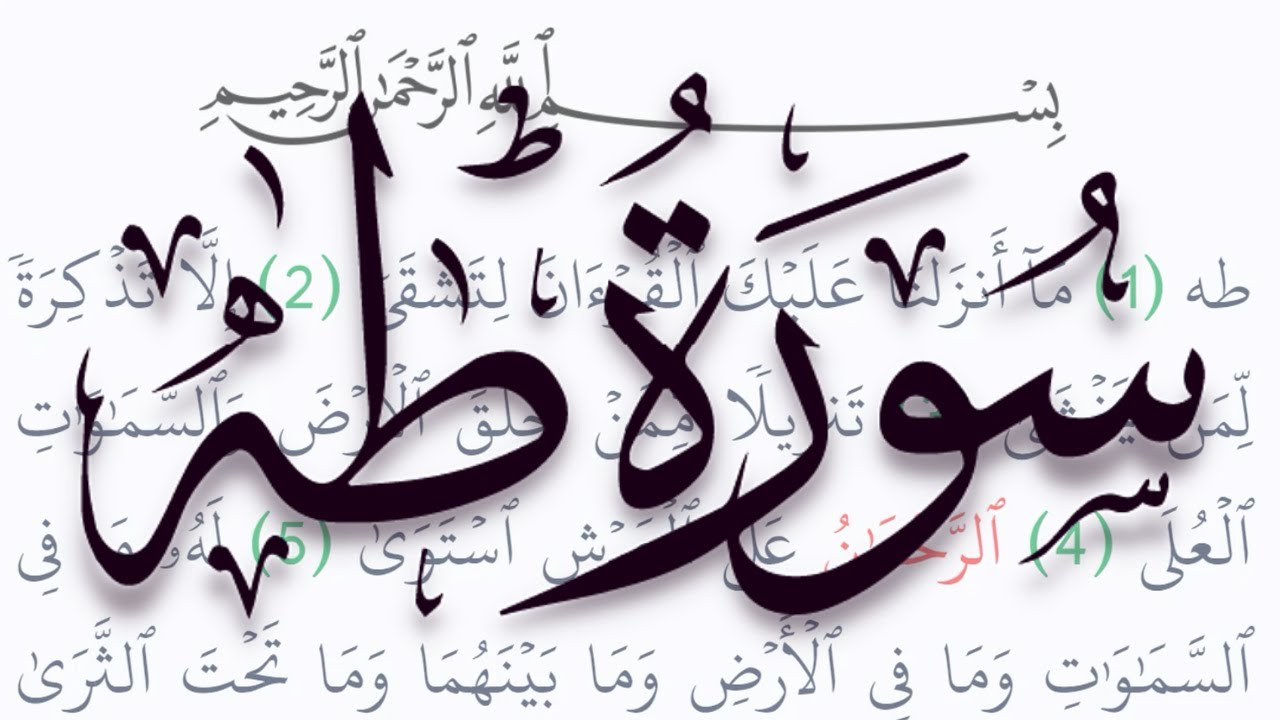 بِسْمِ ٱللَّهِ ٱلرَّحْمَٰنِ ٱلرَّحِيمِ
سُورَةُ طٰهٰ
طه (1) مَآ أَنزَلْنَا عَلَيْكَ ٱلْقُرْءَانَ لِتَشْقَىٰ (2) إِلَّا تَذْكِرَةً
لِّمَن يَخْشَىٰ تَنزِيلًا مِّمَّنْ خَلَقَ ٱلْأَرْضَ وَٱلسَّمَٰوَٰتِ
ٱلْعُلَى (4) ٱلرَّحْمَٰنُ عَلَى ٱلْعَرْشِ ٱسْتَوَىٰ (5) لَهُۥ مَا فِى
ٱلسَّمَٰوَٰتِ وَمَا فِى ٱلْأَرْضِ وَمَا بَيْنَهُمَا وَمَا تَحْتَ ٱلثَّرَىٰ